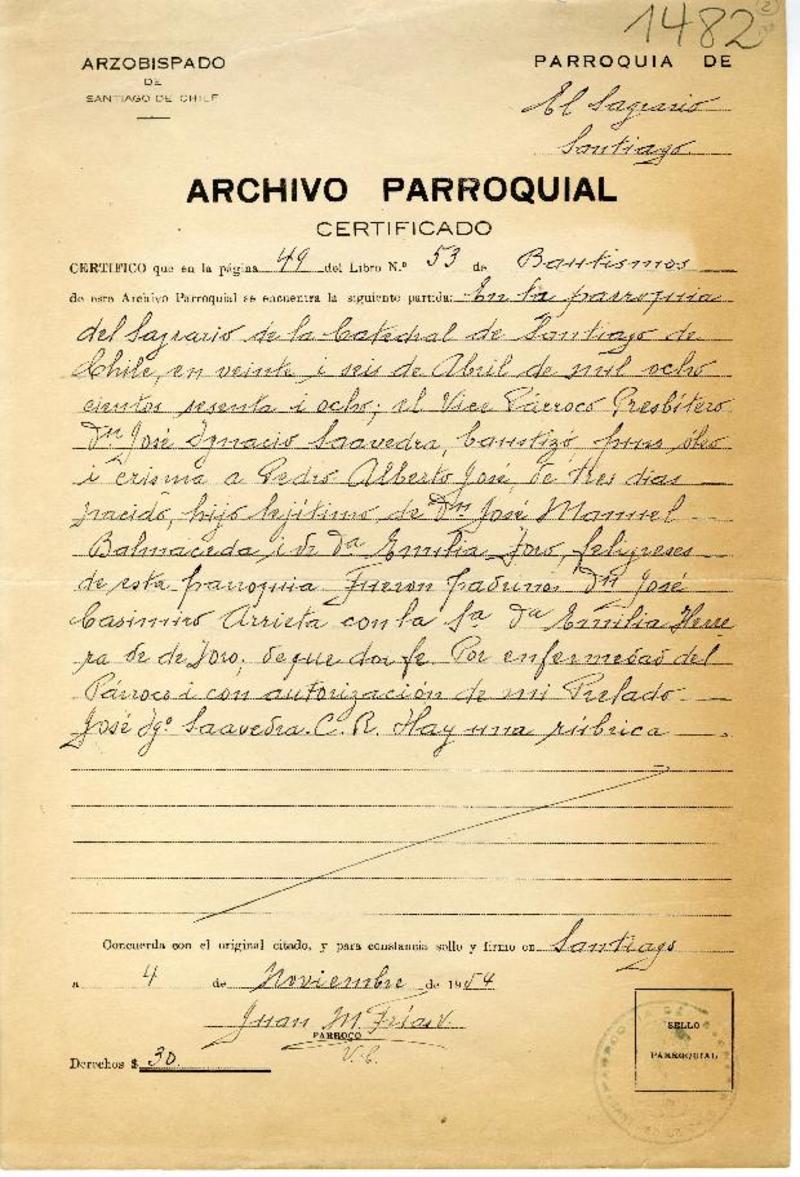 1482
2
ARZOBISPADO
DE
SANTIAGO DE CHILE
PARROQUIA DE
El Sagrario
Santiago
ARCHIVO PARROQUIAL
CERTIFICADO
CERTIFICO que en la página 49 del Libro N.º 53 de Bautismos
de este Archivo Parroquial se encuentra la siguiente partida: En la parroquia
del Sagrario de la Catedral de Santiago de
Chile, en veinte i seis de Abril de mil ocho
cientos sesenta i ocho; el Vice Párroco Presbítero
Dn José Ignacio Saavedra, bautizó, puso óleo
i crisma a Pedro Alberto José, de tres dias
nacido, hijo lejítimo de Dn José Manuel
Balmaceda i de Da Emilia Toro, feligreses
de esta parroquia Fueron padrinos Dn José
Casimiro Arrieta con la Sa Da Emilia Herre
ra de de Toro; de que doi fe Por enfermedad del
Párroco i con autorización de mi Prelado
José Igº Saavedra. C. R. Hay una rúbrica
Concuerda con el original citado, y para constancia sello y firmo en Santiago
a 4 de Noviembre de 1954
Juan M. Frías V.
PARROCO
V. C.
Derechos $ 30
SELLO
PARROQUIAL